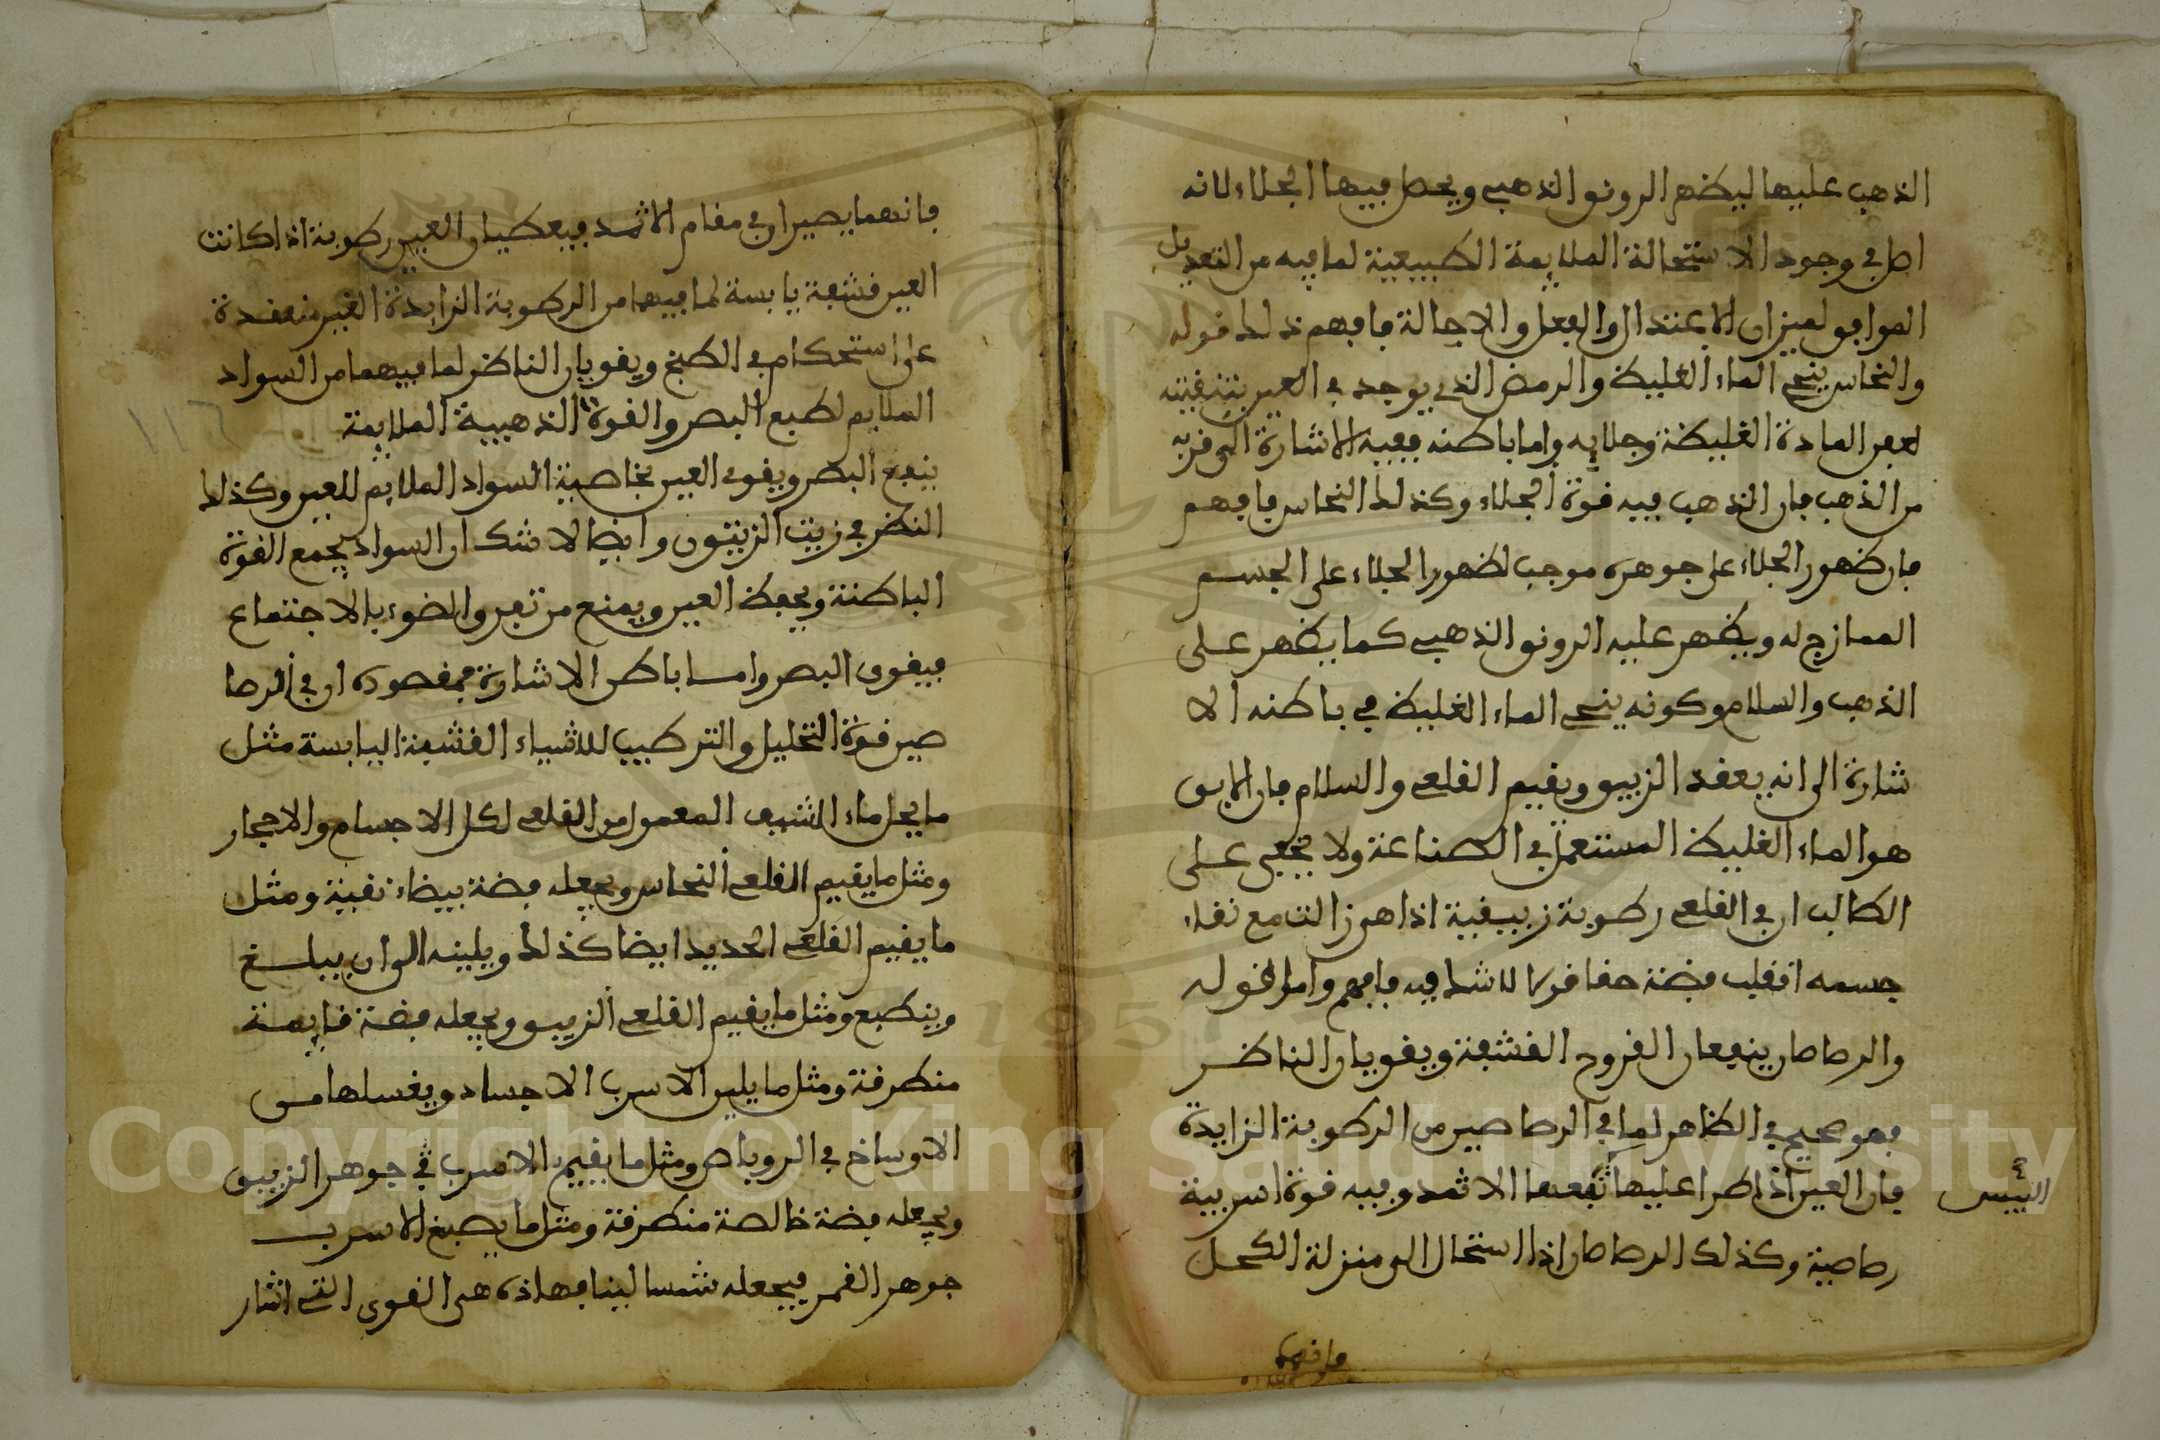 الذهب عليها ليظهر الرونق الذهبي ويحصل فيها الجلاء لانه
اصل في وجود الاستحالة الملايمة الطبيعية لما فيه من التعديل
الموافق لميزان الاعتدال والفعل والاحالة فافهم ذلك قوله
والنحاس ينحي الماء الغليظ والرمض الذي يوجد في العين بتنقيته
لعفن المادة الغليظة وجلايه واما باطنه ففيه الاشارة الى قربه
من الذهب فان الذهب فيه قوة الجلاء وكذلك النحاس فافهم
فان ظهور الجلاء على جوهره موجب لظهور الجلاء على الجسم
الممازج له ويظهر عليه الرونق الذهبي كما يظهر على
الذهب والسلام وكونه ينحي الماء الغليظ في باطنه الا
شارة الى انه يعقد الزيبق ويقيم القلعي والسلام فان الابق
هو الماء الغليظ المستعمل في الصناعة ولا يخفى على
الطالب ان في القلعي رطوبة زيبقية اذا هي زالت مع نقاء
جسمه انقلب فضة حقا قولا لا شك فيه فافهم واما قوله
والرصاصان ينفعان القروح القشفة ويقويان الناظر
فهو صحيح في الظاهر لما في الرصاصين من الرطوبة الزايدة
فان العين اذا طرا عليها نفعها الاثمد وفيه قوة اسربية
اليبس
رصاصية وكذلك الرصاصان اذا استحال الى منزلة الكحل
فانهما
فانهما يصيران في مقام الاثمد فيعطيان العين رطوبة اذا كانت
العين قشفة يابسة لما فيهما من الرطوبة الزايدة الغير منعقدة
على استحكام في الطبخ ويقويان الناظر لما فيهما من السواد
الملايم لطبع البصر والقوة الذهبية الملايمة
ينفع البصر ويقوي العين بخاصية السواد الملايم للعين وكذلك
النظر في زيت الزيتون وايضا لا شك ان السواد يجمع القوة
الباطنة ويحفظ العين ويمنع من تفرق الضوء بالاجتماع
فيقوى البصر واما باطن الاشارة فمقصوده ان في الرصا
صين قوة التحليل والتركيب للاشياء القشفة اليابسة مثل
ما يحل ماء الشبه المعمول من القلعي لكل الاجسام والاحجار
ومثل ما يقيم القلعي النحاس ويجعله فضة بيضاء نقية ومثل
ما يقيم القلعي الحديد ايضا كذلك ويلينه الى ان يبلغ
وينطبع ومثل ما يقيم القلعي الزيبق ويجعله فضة قايمة
منطرقة ومثل ما يلين الاسرب الاجساد ويغسلها من
الاوساخ في الروباص ومثل ما يقيم الاسرب في جوهر الزيبق
ويجعله فضة خالصة منطرقة ومثل ما يصبغ الاسرب
جوهر القمر فيجعله شمسا لينا فهاذه هي القوى التي اشار
١١٦
Copyright © King Saud University
1957